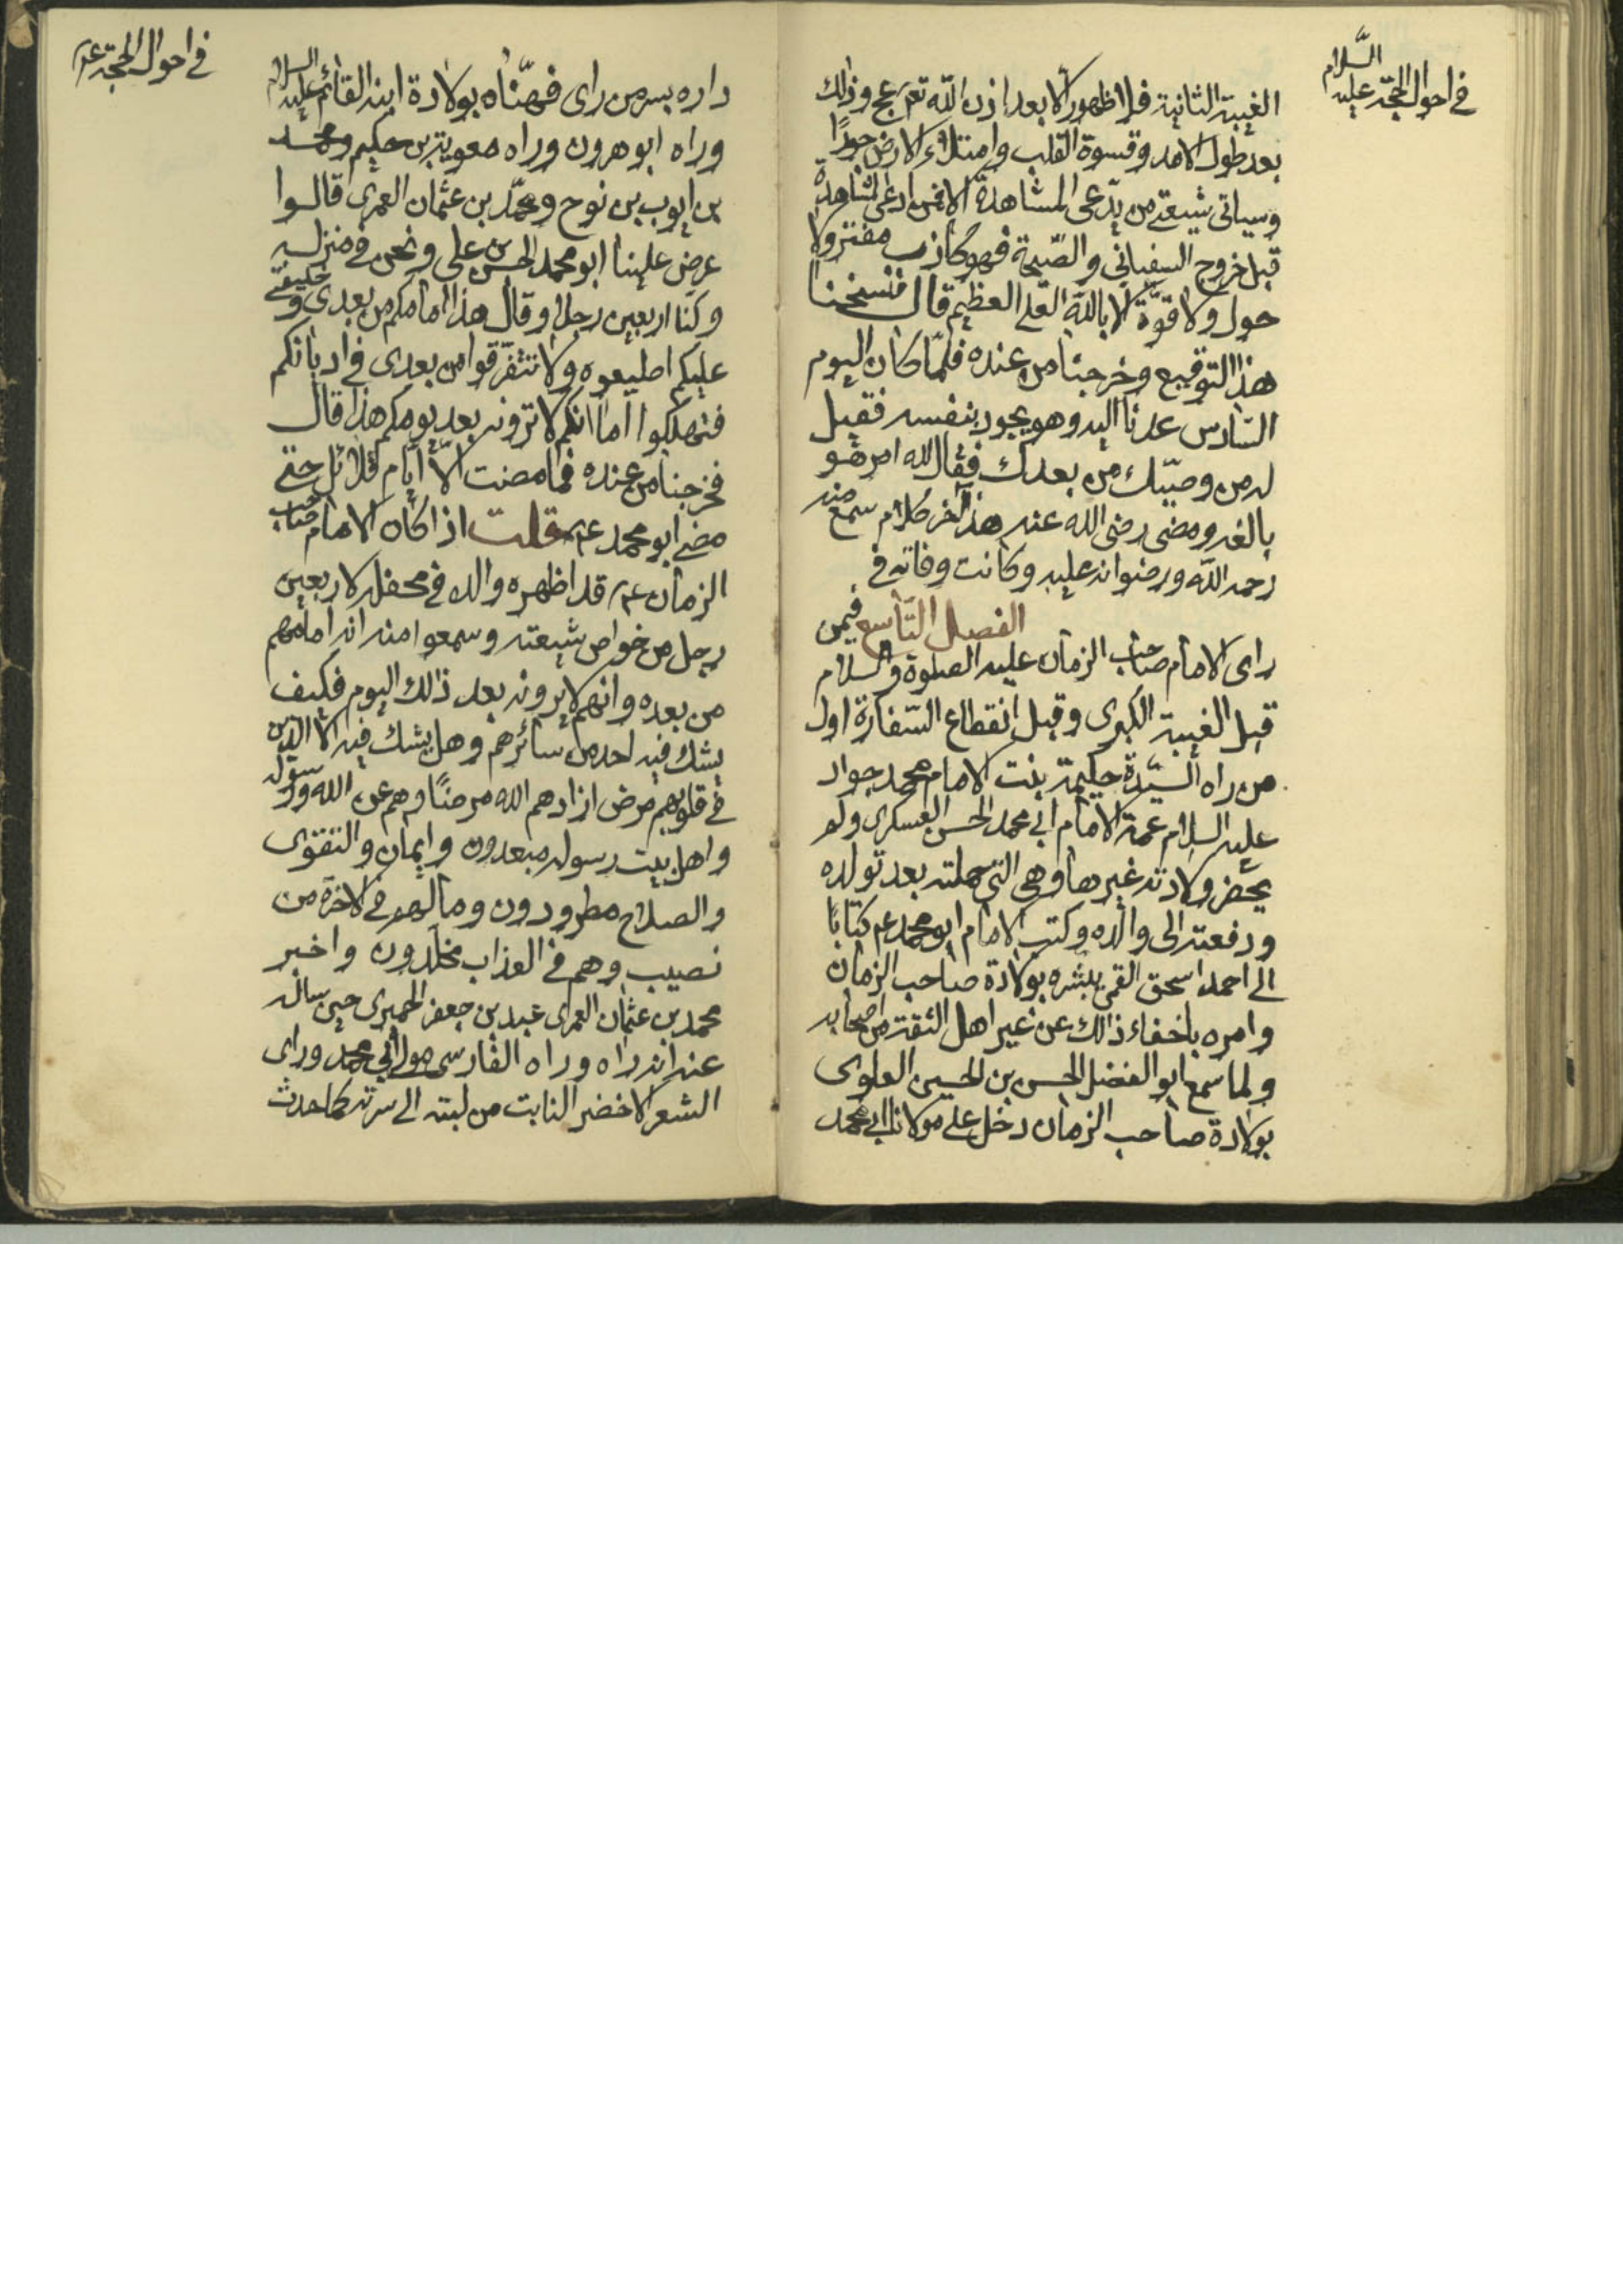 في احوال الحجة عليه السَّلام
الغيبة الثانية فلا ظهور الا بعد اذن اللّه تعم عج وذلك
بعد طول الامد وقسوة القلب وامتلاء الارض جورًا
وسياتى شيعتى من يدّعى المشاهدة الا فمن ادعى المشاهدة
قبل خروج السفياني والصّيحة فهو كاذب مفتر ولا
حول ولا قوّة الا باللّه العلى العظيم قال فنسخنا
هذا التوقيع وخرجنا من عنده فلمّا كان اليوم
السّادس عدنا اليه وهو يجود بنفسه فقيل
له من وصيّك من بعدك فقال لله امر هو
بالغه ومضى رضى الله عنه هذا آخر كلام سمع منه
رحمه اللّه ورضوانه عليه وكانت وفاته في
الفصل التّاسع فيمن
راى الامام صاحب الزمان عليه الصلوة والسلام
قبل الغيبة الكبرى وقبل انقطاع السّفارة اول
من راه السيّدة حكيمة بنت الامام محمد جواد
عليه السلام عمة الامام ابي محمد الحسن العسكرى ولم
يحضر ولادته غيرها وهي التى حملته بعد تولده
ودفعته الى والده وكتب الامام ابو محمد ع كتابًا
الى احمد اسحق القمى يبشره بولادة صاحب الزمان
وامره باخفاء ذالك عن غير اهل الثقة من اصحابه
ولما سمع ابو الفضل الحسن بن الحسين العلوى
بولادة صاحب الزمان دخل على مولانا ابي محمد
في احوال الحجة ع
داره بسر من راى فهنّاه بولادة ابنه القائم عليه السلام
وراه ابو هرون وراه معوية بن حكيم ومحمد
بن ايوب بن نوح ومحمّد بن عثمان العمرى قالوا
عرض علينا ابو محمد الحسن بن على ونحن في منزله
وكنا اربعين رجلا وقال هذا امامكم من بعدى وخليفتى
عليكم اطيعوه ولا تتفرّقوا من بعدى في اديانكم
فتهلكوا اما انكم لا ترونه بعد يومكم هذا قال
فخرجنا من عنده فما مضت الّا ايام قلائل حتى
مضى ابو محمد ع قلت اذا كان الامام صاحب
الزمان ع قد اظهره والده في محفل لاربعين
رجل من خواص شيعته وسمعوا منه انه امامهم
من بعده وانهم لا يرونه بعد ذالك اليوم فكيف
يشك فيه احد من سائرهم وهل يشك فيه الا الذين
في قلوبهم مرض ازادهم الله مرضًا وهم عن الله ورسوله
واهل بيت رسوله مبعدون وايمان والتقوى
والصلاح مطرودون وما لهم في الاخرة من
نصيب وهم في العذاب مخلّدون واخبر
محمد بن عثمان العمرى عبد بن جعفر الحميرى حين ساله
عنه انه راه وراه الفارسى مولى ابي محمد وراى
الشعر الاخضر النابت من لبته الى سرته كما حدث